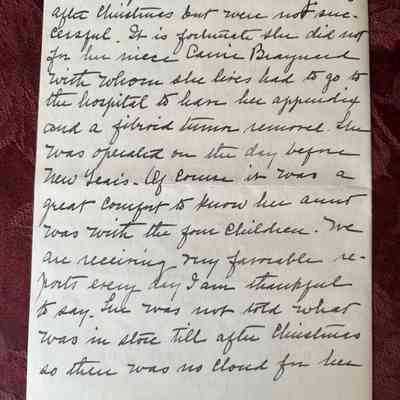 after Christmas but were not suc-
cessful. It is fortunate she did not
for her niece Carrie Braynard
with whom she lives had to go to
the hospital to have her appendix
and a fibroid tumor removed. She
was operated on the day before
New Years. Of course it was a
great comfort to know her aunt
was with the four children. We
are receiving very favorable re-
ports every day I am thankful
to say. She was not told what
was in store till after Christmas
so there was no cloud for her